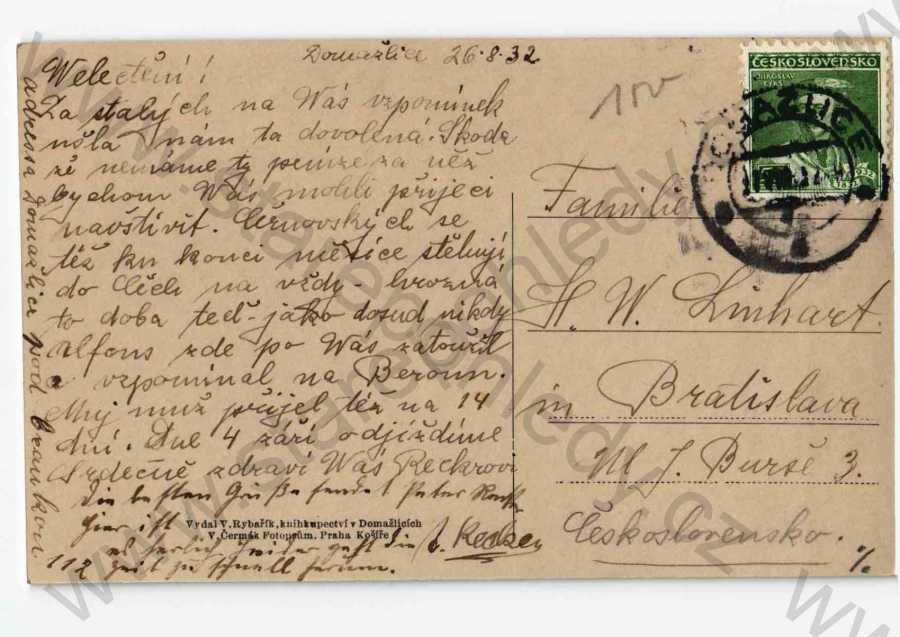 Domažlice 26.8.32
Veletěni!
Za stalých na Wás vzpominek
ušla nám ta dovolená. Škoda
že nemáme ty penize za něž
bychom Wás mohli přijeci
navštívit. Černovských se
též ku konci měsice stěhují
do Čech na vždy - hrozná
to doba teď - jako dosud nikdy
Alfons zde po Wás zatoužil
a vzpominal na Beroun.
Muj muž přijel též na 14
dní. Dne 4 září odjíždíme
Srdečně zdraví Wás Reckrovi
die besten Grüße sendet Peter
hier ist
geht die
Zeit zu schnell herum.
adressa Domažlice pod
112
Vydal V. Rybařík, knihkupectví v Domažlicích
V. Čermák Fotoprům. Praha Košíře
ČESKOSLOVENSKO
MIROSLAV
TYRŠ
1832 1932
DOMAŽLICE
Familie
H. W. Linhart.
in Bratislava
Ul J. Burše 3.
Československo.
www.staregohledy.cz